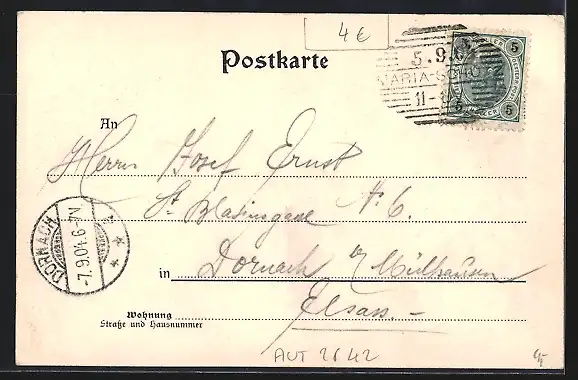 4€
Postkarte
5.9.
MARIA-SCHU
11-
5 5
An
Herrn Josef Ernst
St. Blasiusgasse № 6.
DORNACH
-7.9.04.6-7N
in Dornach b/ Mülhausen
Elsass -
Wohnung
Straße und Hausnummer
AUT 2842